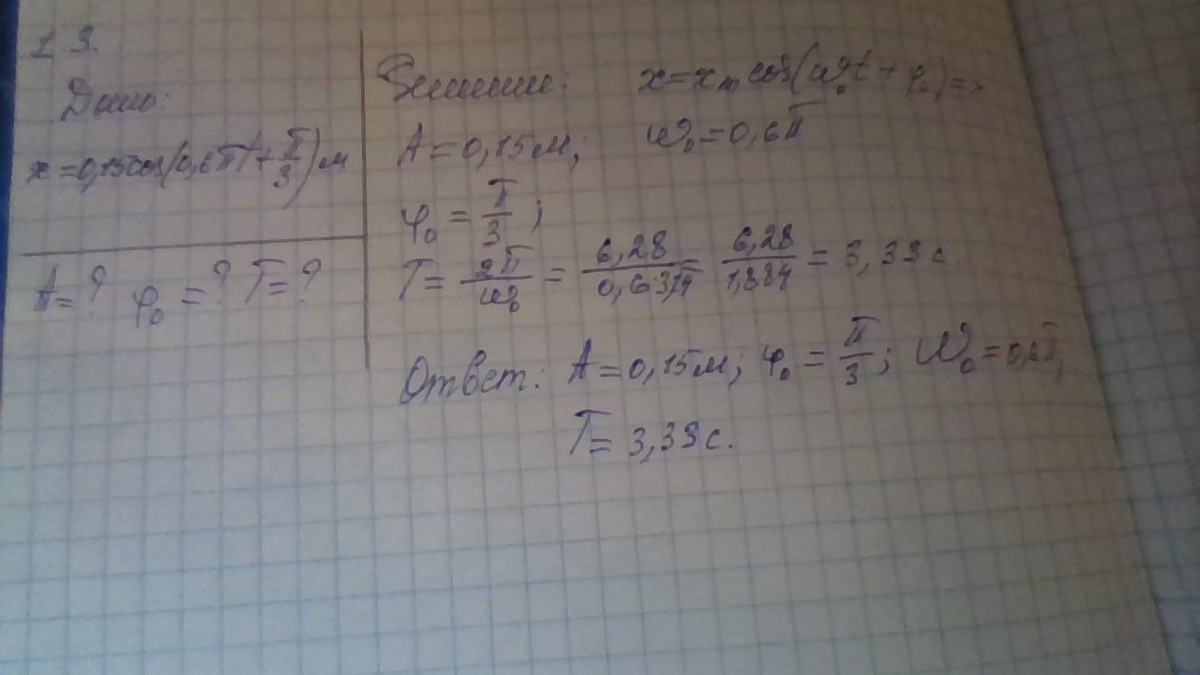 1 3.
Дано:
x=0,15cos(0,6πt+π/3)м
A=? φ₀=? T=?
Решение: x=xₘcos(ω₀t+φ₀)=>
A=0,15м; ω₀=0,6π
φ₀=π/3;
T=2π/ω₀=6,28/0,6·3,14=6,28/1,884=3,33с.
Ответ: A=0,15м; φ₀=π/3; ω₀=0,6π;
T=3,33с.